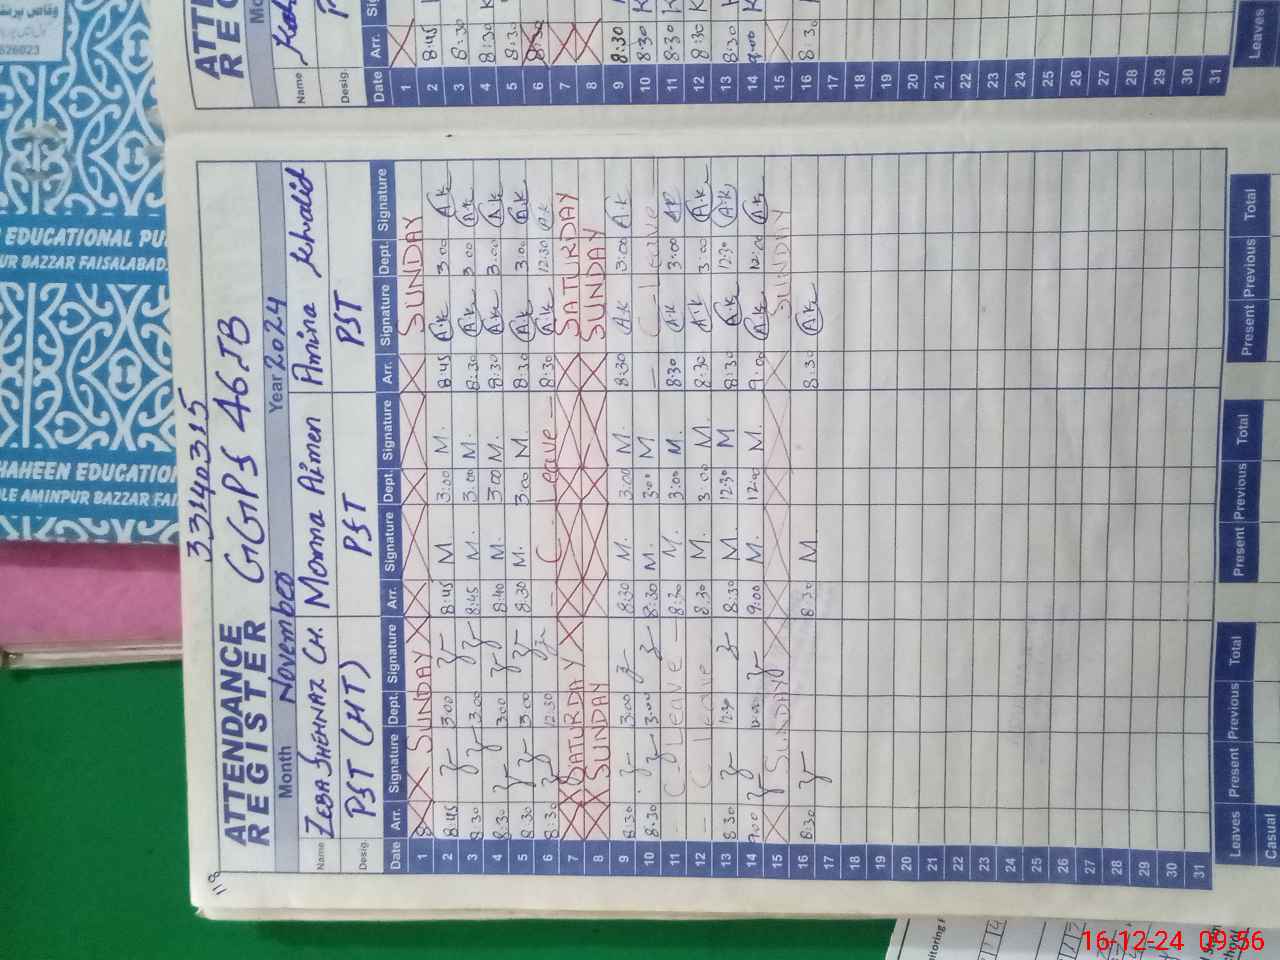 118
33140315
ATTENDANCE REGISTER GGPS 46.JB
Month November Year 2024
Name ZEBA SHEHNAZ CH. Momna Aimen Amina Khalid
Desig. PST (HT) PST PST
Date Arr. Signature Dept. Signature Arr. Signature Dept. Signature Arr. Signature Dept. Signature
1 SUNDAY SUNDAY
2 8:45 3:00 8:45 M 3:00 M. 8:45 A.k 3:00 A.k
3 8:30 3:00 8:45 M. 3:00 M. 8:30 A.k 3:00 A.k
4 8:30 3:00 8:40 M. 3:00 M. 8:30 A.k 3:00 A.k
5 8:30 3:00 8:30 M. 3:00 M. 8:30 A.k 3:00 A.k
6 8:30 12:30 C Leave 8:30 A.k 12:30 A.k
7 SATURDAY SATURDAY
8 SUNDAY SUNDAY
9 8:30 3:00 8:30 M. 3:00 M. 8:30 A.k 3:00 A.k
10 8:30 3:00 8:30 M. 3:00 M C-Leave
11 C Leave 8:30 M. 3:00 M. 8:30 A.k 3:00 A.k
12 C leave 8:30 M. 3:00 M. 8:30 A.k 3:00 A.k
13 8:30 12:30 8:30 M 12:30 M 8:30 A.k 12:30 A.k
14 9:00 12:00 9:00 M. 12:00 M. 9:00 A.k 12:00 A.k
15 SUNDAY SUNDAY
16 8:30 8:30 M 8:30 A.k
17
18
19
20
21
22
23
24
25
26
27
28
29
30
31
Leaves Present Previous Total Present Previous Total Present Previous Total
Casual
Name
Desig.
Date Arr.
1
2 8:45
3 8:30
4 8:30
5 8:30
6 8:30
7
8
9 8:30
10 8:30
11 8:30
12 8:30
13 8:30
14 9:00
15
16 8:30
17
18
19
20
21
22
23
24
25
26
27
28
29
30
31
Leaves
EDUCATIONAL PU
UR BAZZAR FAISALABAD.
HAHEEN EDUCATIO
LE AMINPUR BAZZAR FAI
626023
16-12-24 09:56